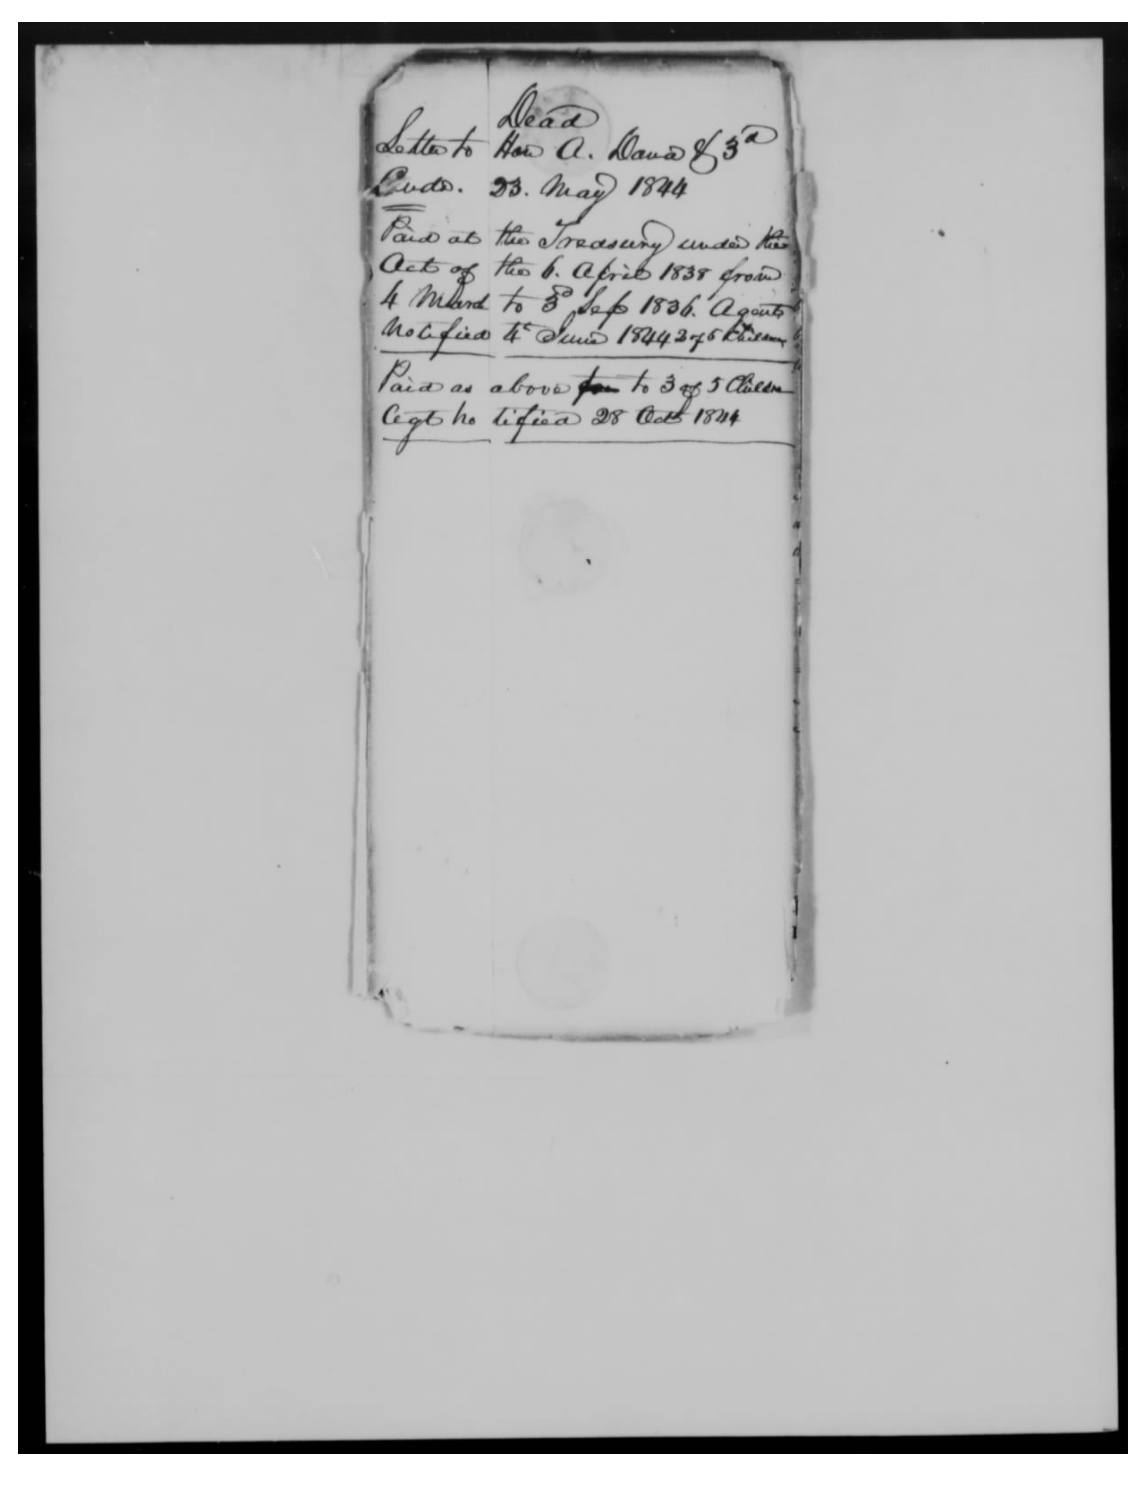 Dead
Letter to Hon A. Dana & 3d
Aude. 23. May 1844
Paid at the Treasury under the
Act of the 6. April 1838 from
4 March to 3d Sep 1836. Agents
Notified 4th June 1844 2 of 5 Children
Paid as above for to 3 of 5 Children
Agt notified 28 Oct 1844